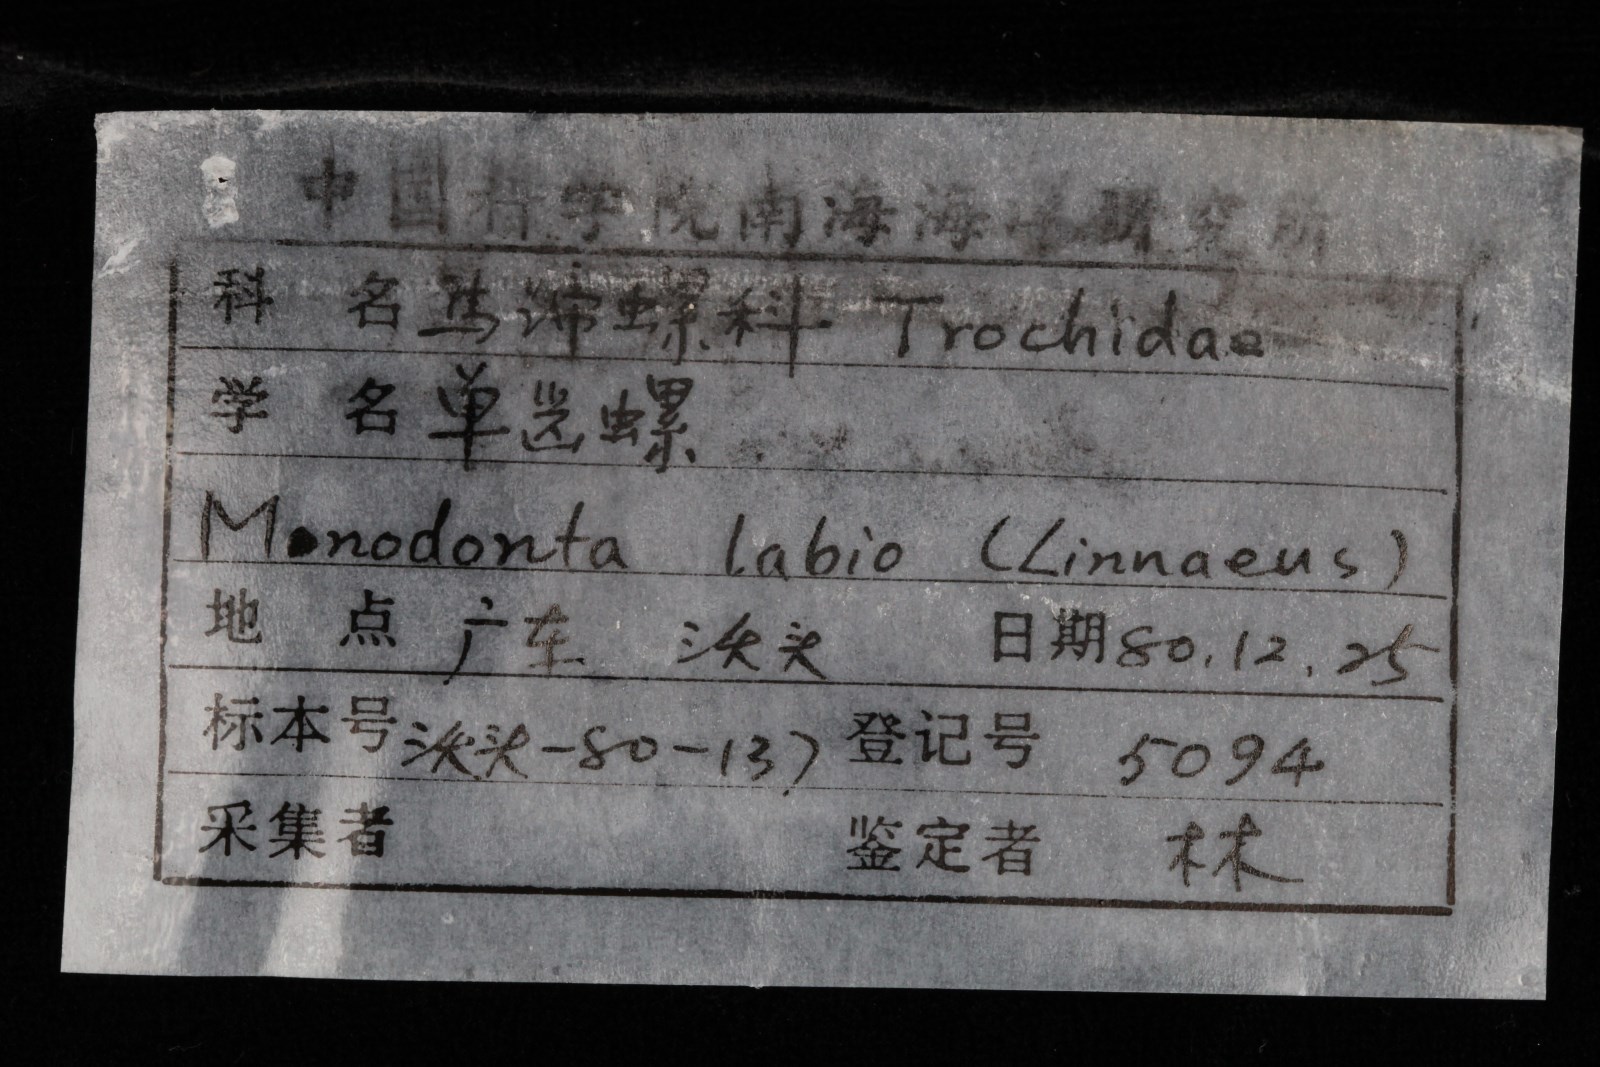 中国科学院南海海洋研究所
科 名 马蹄螺科 Trochidae
学 名 单齿螺
Monodonta labio (Linnaeus)
地 点 广东 澳头 日期 80.12.25
标本号 澳头-80-137 登记号 5094
采集者 鉴定者 林